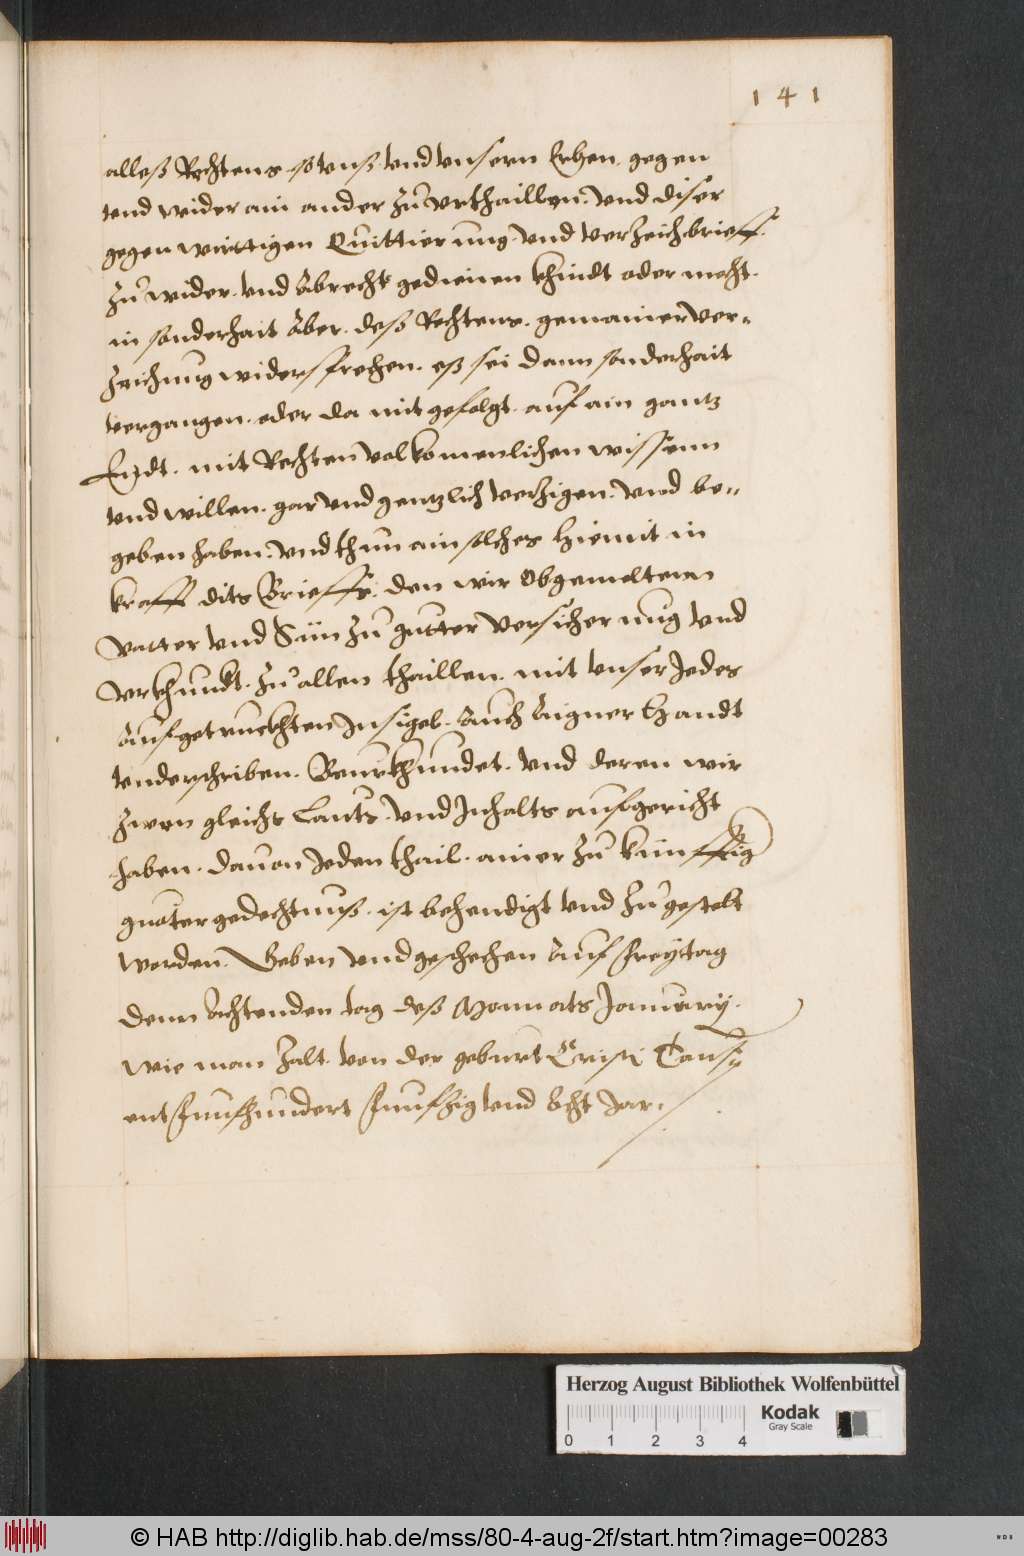 141
alleß Rechtens so vnß vnd vnsern Erben. gegen
vnd wider ain ander zu vrthaillen. vnd diser
gegenwirttigen Quittierung vnd verzeich brieff
zu wider. vnd Abrecht gedienen khindt oder mecht.
in sonderhait Aber. deß Rechtens. gemainer ver=
zeichnug widersprechen. eß sei dann sonderhait
vergangen. oder da mit gefolgt. auf ain gantz
Endt. mit Rechten volkomenlichen wissenn
vnd willen. gar vnd gentzlich verzigen. vnd be=
geben haben. vnd thun ain solches hiemit in
krafft dits Brieffs. den wir Obgemeltenn
Vatter vnd Sün zu gutter versicherung vnd
Vrkhundt. zu allen thaillen. mit vnser Jedes
Aufgetruckhten Insigel. Auch Aigner Handt
vnderschriben. Beurkhundet. vnd deren wir
zwen gleichs Lauts. vnd Inhalts aufgericht
haben. dauon Jeden thail. ainer zu künfftig
guoter gedechtnuß. ist behendigt vnd zugestelt
worden. Geben vnd geschechen Auf Freytag
denn Achtenden tag deß Monnats January.
wie man zalt. von der geburt Cristi Tausy
ent Funfhundert Funfzig vnd Acht Jar.
Herzog August Bibliothek Wolfenbüttel
0 1 2 3 4
Kodak
Gray Scale
© HAB http://diglib.hab.de/mss/80-4-aug-2f/start.htm?image=00283